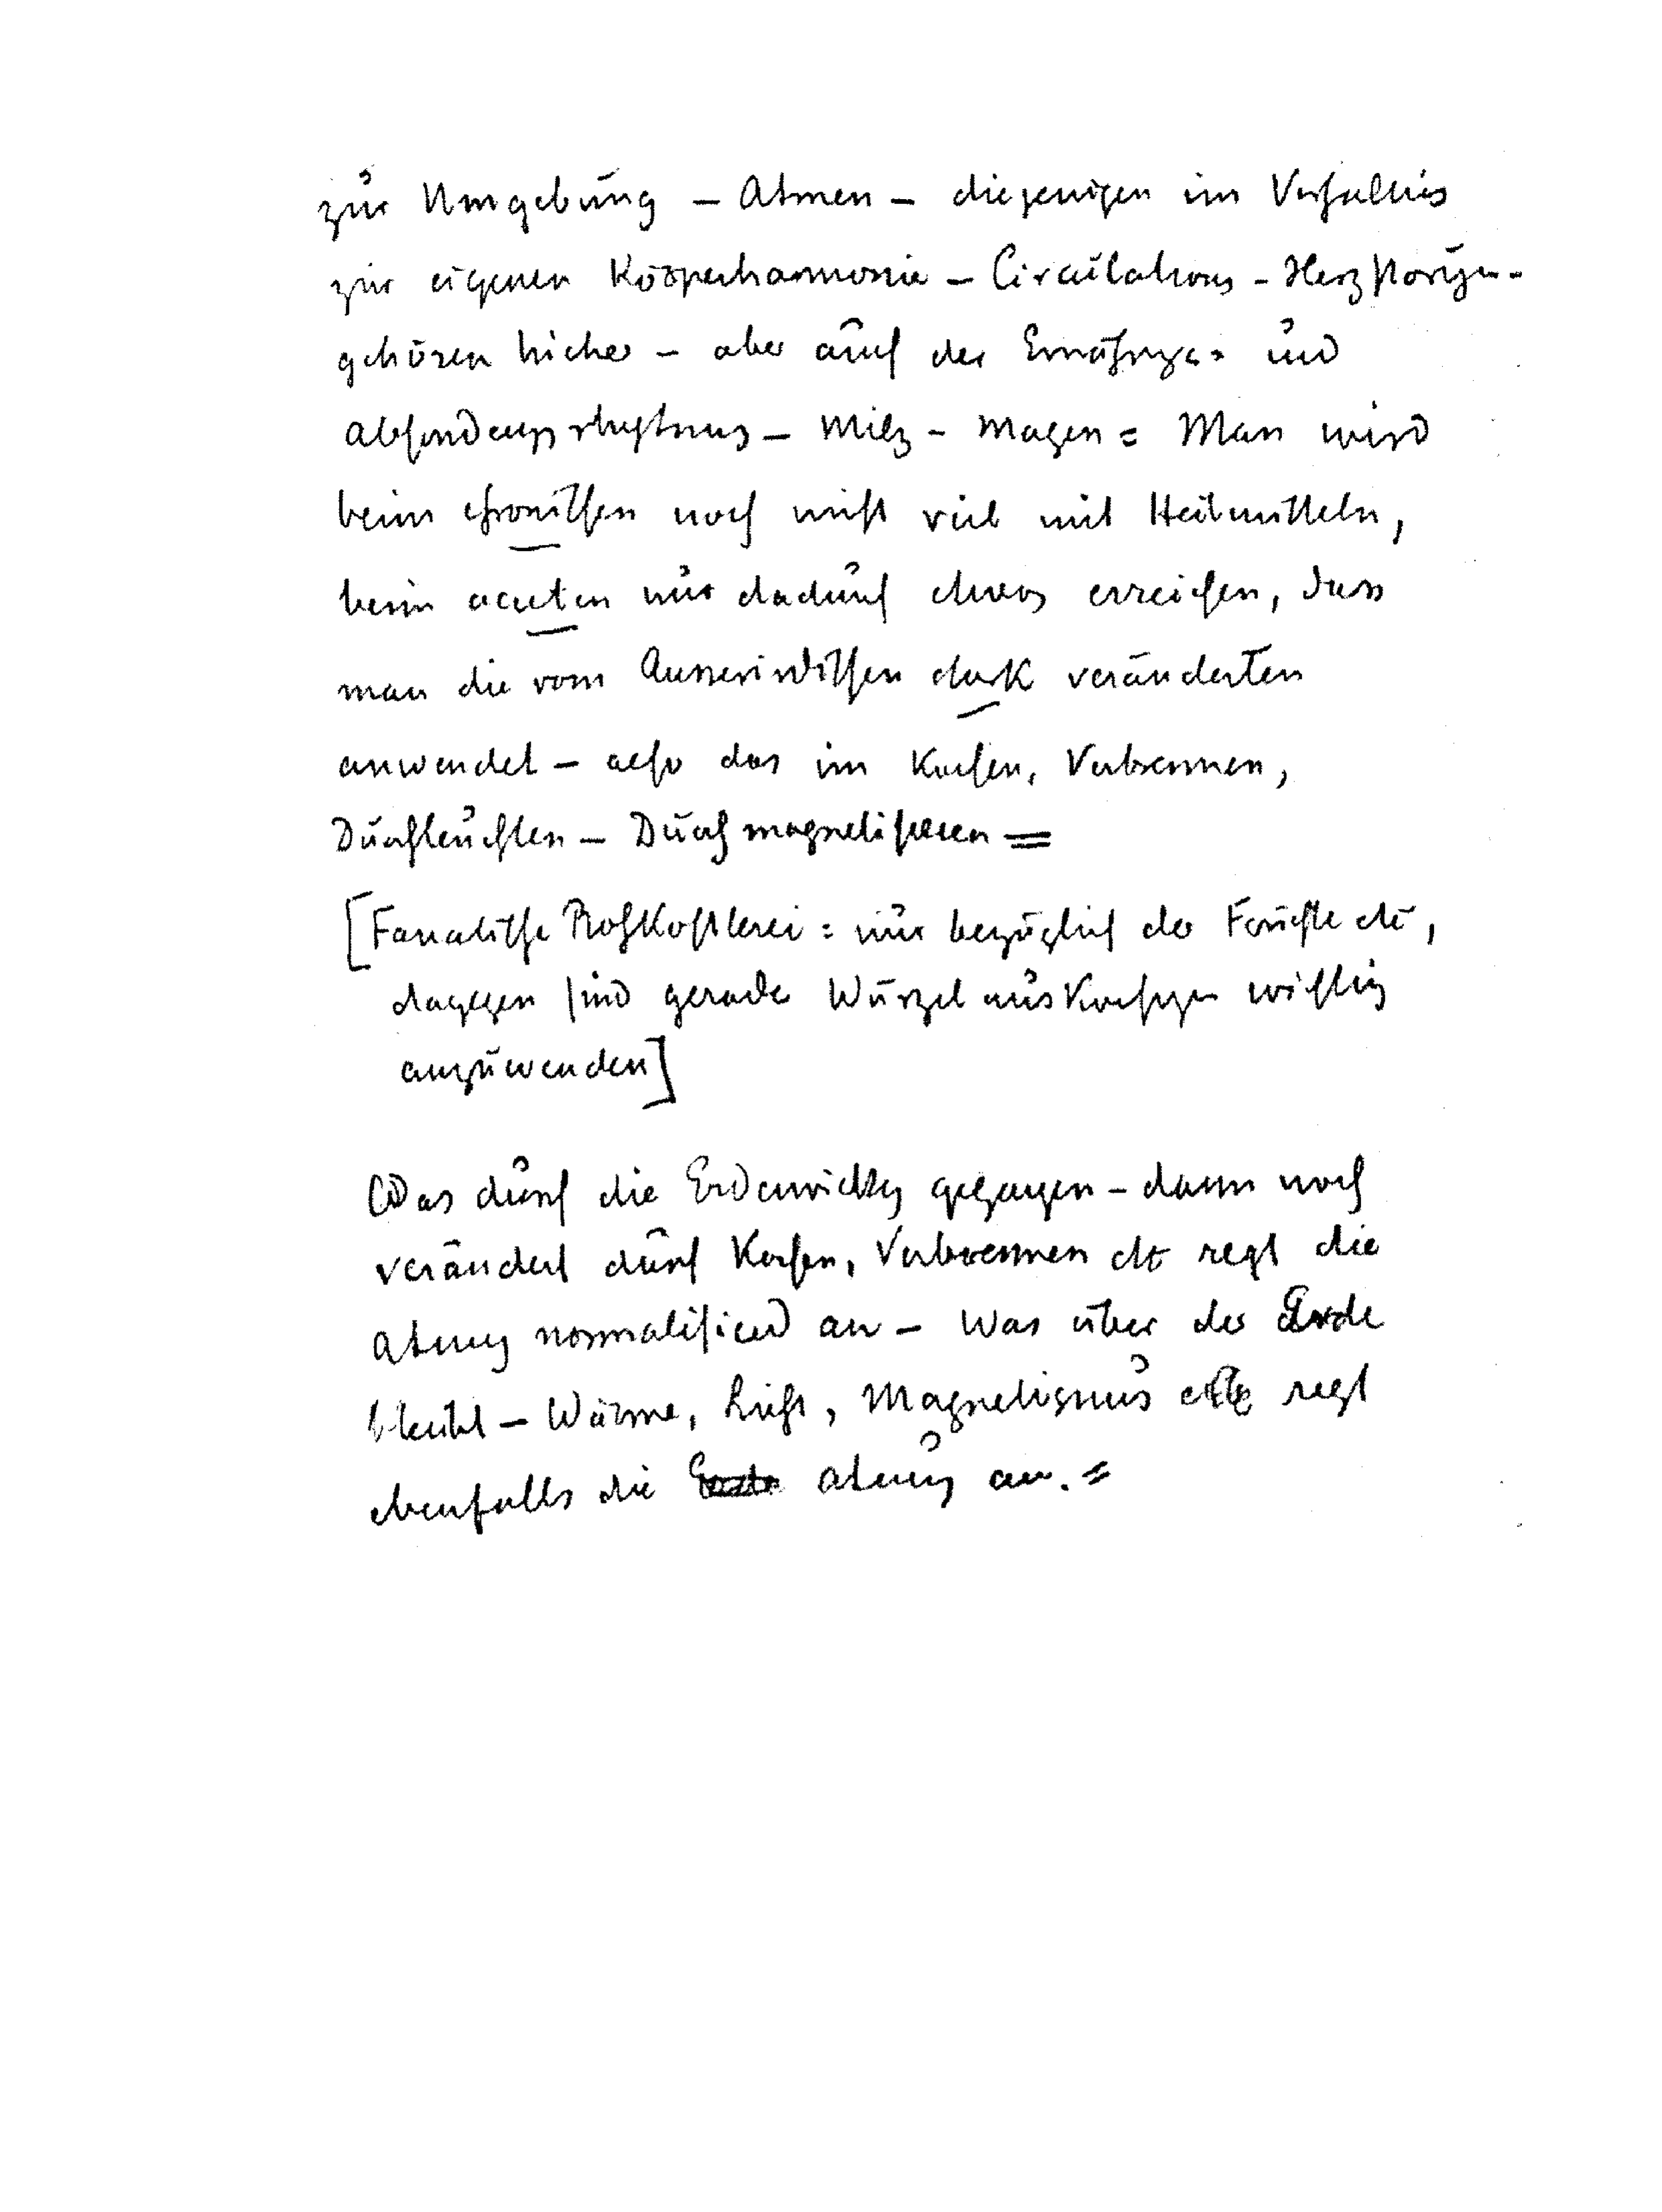 zur Umgebung – Atmen – diejenigen im Verhältnis
zur eigenen Körperharmonie – Circulations - Herzstörungen -
gehören hieher – aber auch der Ernährungs= und
Absonderungsrhythmus – Milz - Magen = Man wird
beim chronischen noch nicht viel mit Heilmitteln,
beim acuten nur dadurch etwas erreichen, dass
man die vom Ausserirdischen stark veränderten
anwendet – also das im Kochen, Verbrennen,
Durchleuchten – Durchmagnetisieren =
[Fanatische Rohkostlerei : nur bezüglich der Früchte etc,
dagegen sind gerade Wurzelauskochungen wichtig
anzuwenden]
Was durch die Erdenwicklg gegangen – dann noch
verändert durch Kochen, Verbrennen etc regt die
Atmung normalisierd an – Was über der Erde
bleibt – Wärme, Luft, Magnetismus etc regt
ebenfalls die Atmung an. =